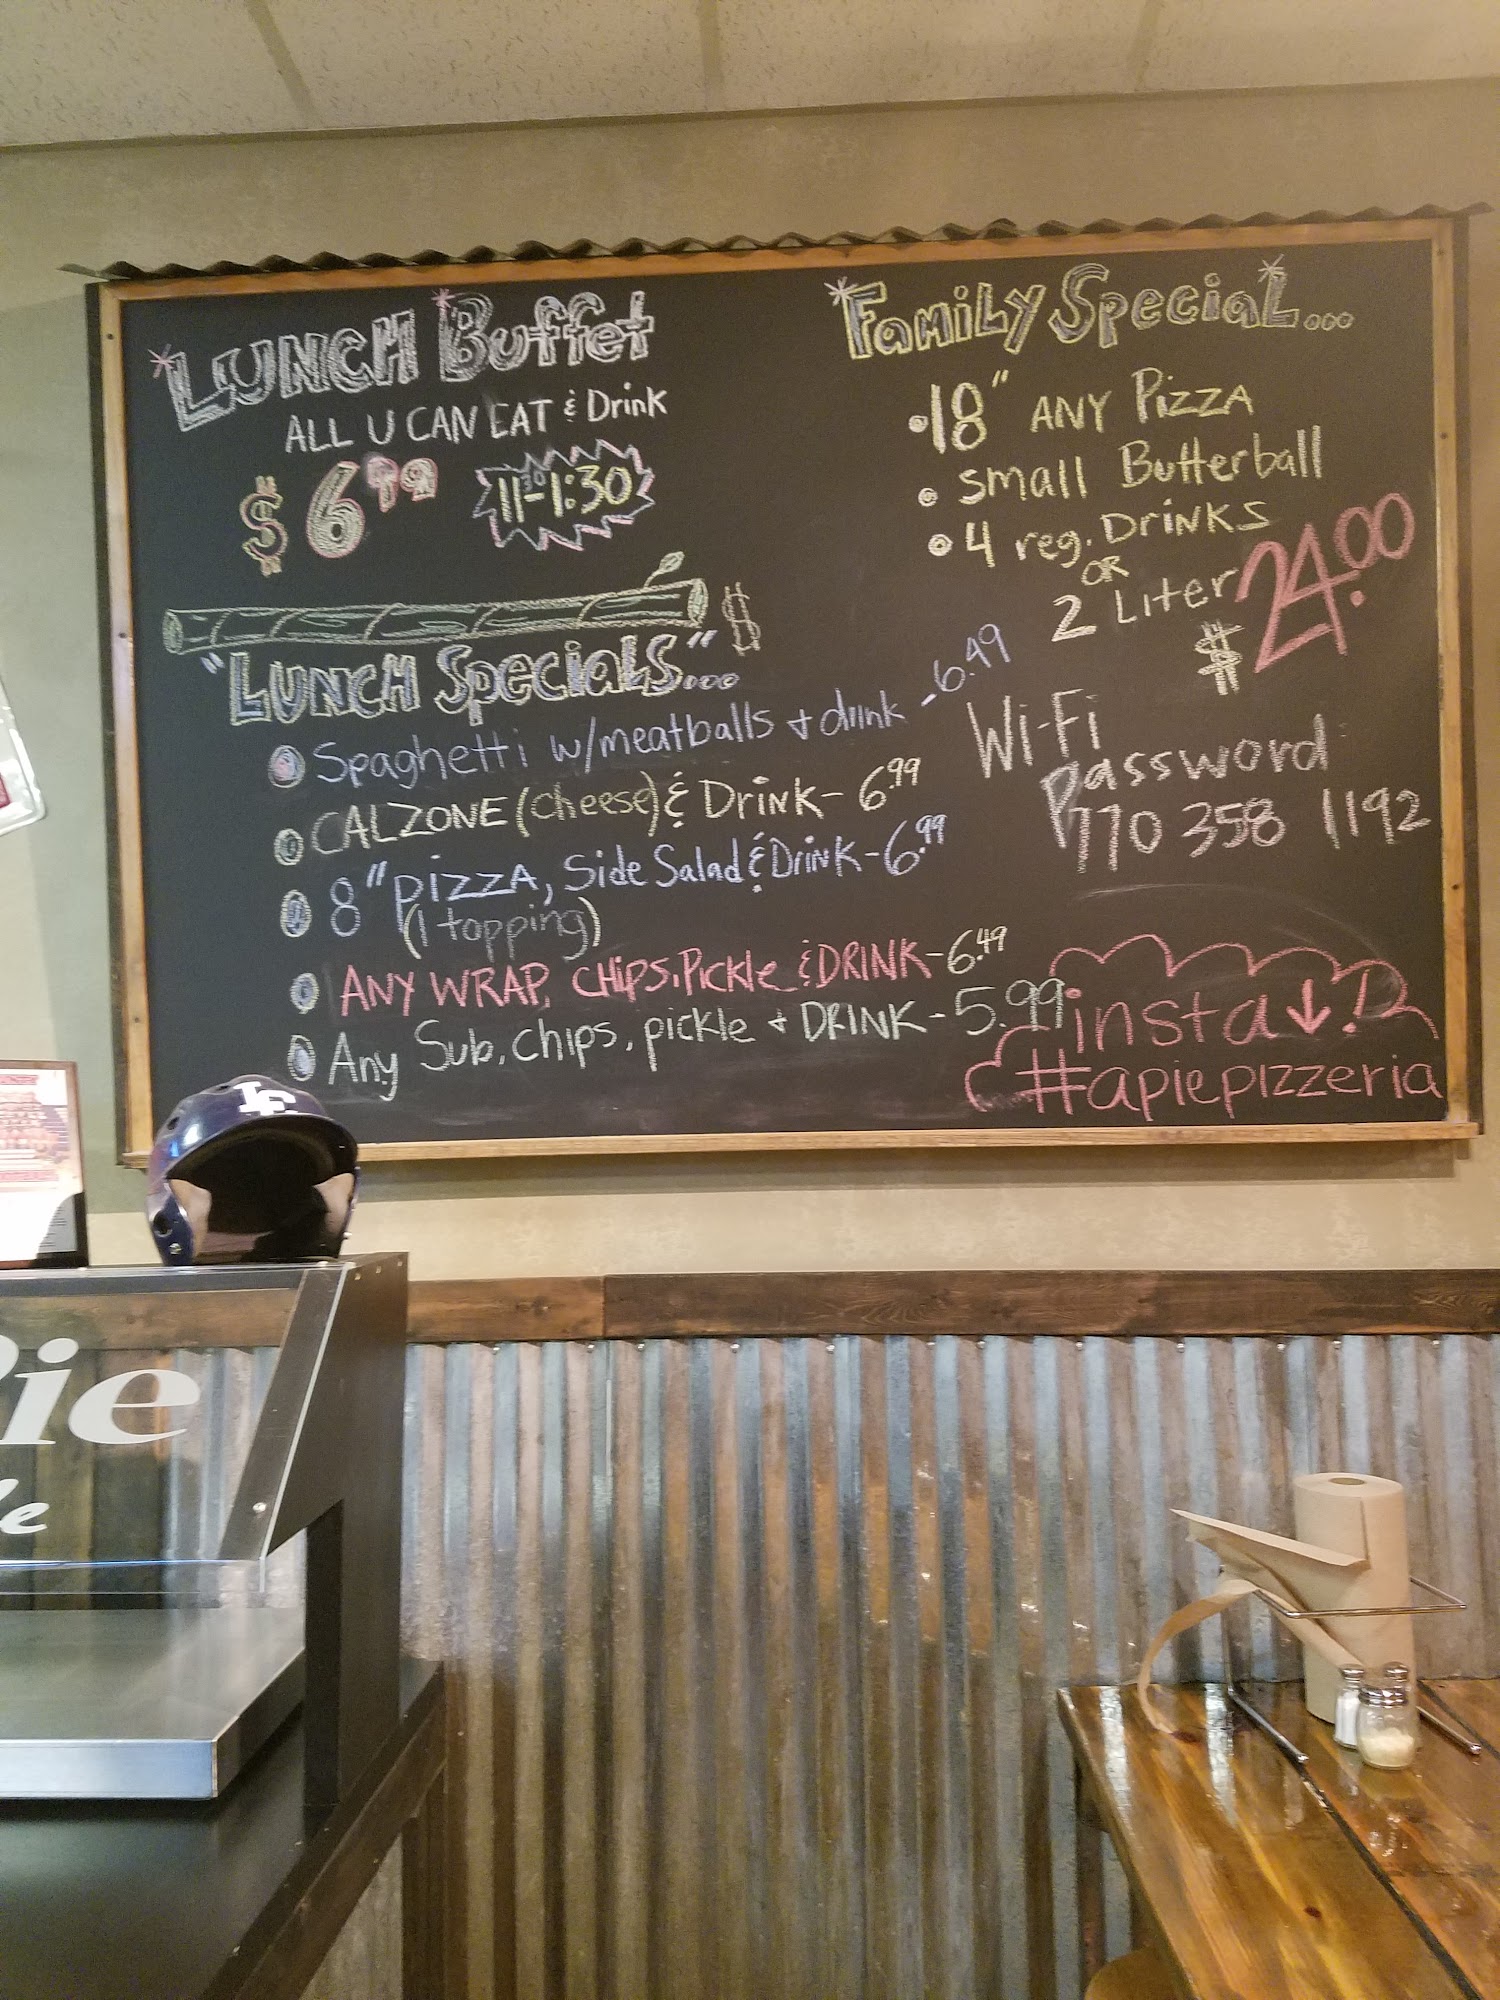 LUNCH Buffet
ALL U CAN EAT & Drink
$6.99 11:30-1:30
"LUNCH SpecialS"...
Spaghetti w/meatballs + drink - 6.49
CALZONE (cheese) & Drink - 6.99
8" pizzA, Side Salad & Drink - 6.99
(1 topping)
ANY WRAP, CHIPS, Pickle & DRINK - 6.49
Any Sub, chips, pickle + DRINK - 5.99
Family Special...
18" ANY PizzA
small Butterball
4 reg. DrinKS
OR
2 Liter
$24.00
Wi-Fi
Password
770 358 1192
insta↓!
#apiepizzeria
LF
Pie